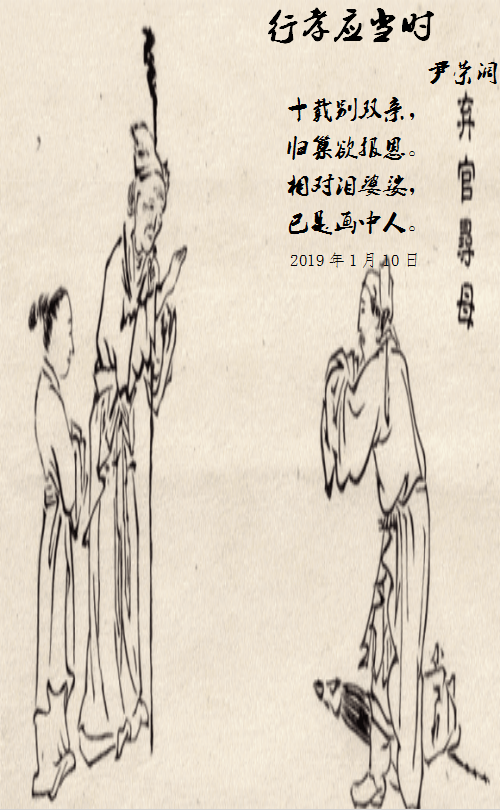 行孝应当时
尹荣润
十载别双亲，
归巢欲报恩。
相对泪婆娑，
已是画中人。
2019年1月10日
弃官尋母